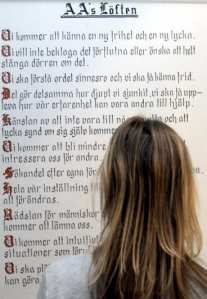 AA's Löften
Vi kommer att känna en ny frihet och en ny lycka.
Vi vill inte beklaga det förflutna eller önska att helt
stänga dörren om det.
Vi ska förstå ordet sinnesro och vi ska få känna frid.
Det gör detsamma hur djupt vi sjunkit, vi ska få upp-
leva hur vår erfarenhet kan vara andra till hjälp.
Känslan av att inte vara till och att
tycka synd om sig själv kommer
Vi kommer att bli mindre
intressera oss för andra
Sökandet efter egna för
Hela vår inställning till
att förändras.
Rädslan för människor
kommer att lämna oss.
Vi kommer att intuitiv
situationer som för
Vi ska pl
kan göra